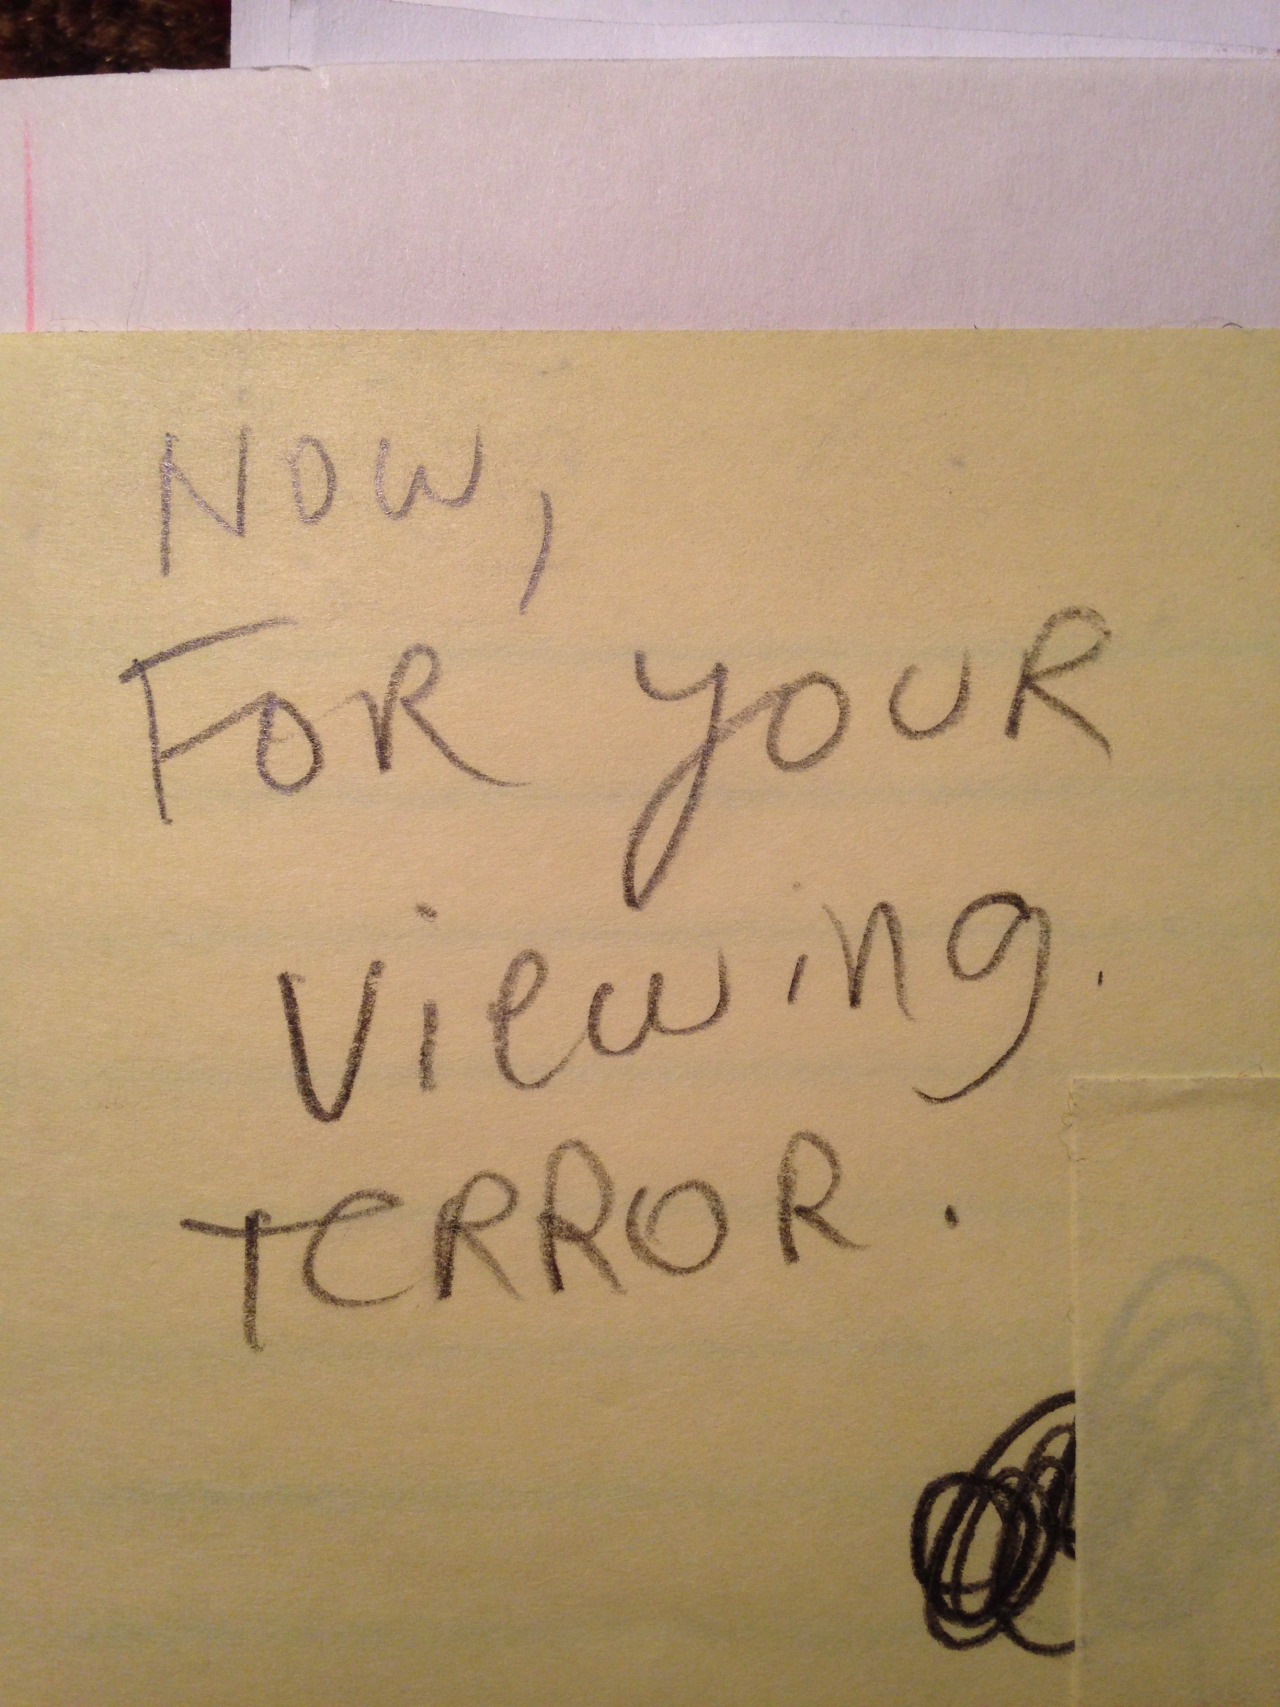 NOW,
FOR YOUR
Viewing.
TERROR.